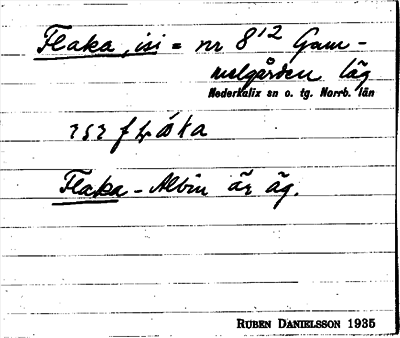 Flaka, isi = nr 8¹² Gam-
melgården låg
Nederkalix sn o. tg. Norrb. län
Flaka - Albin är äg.
RUBEN DANIELSSON 1935